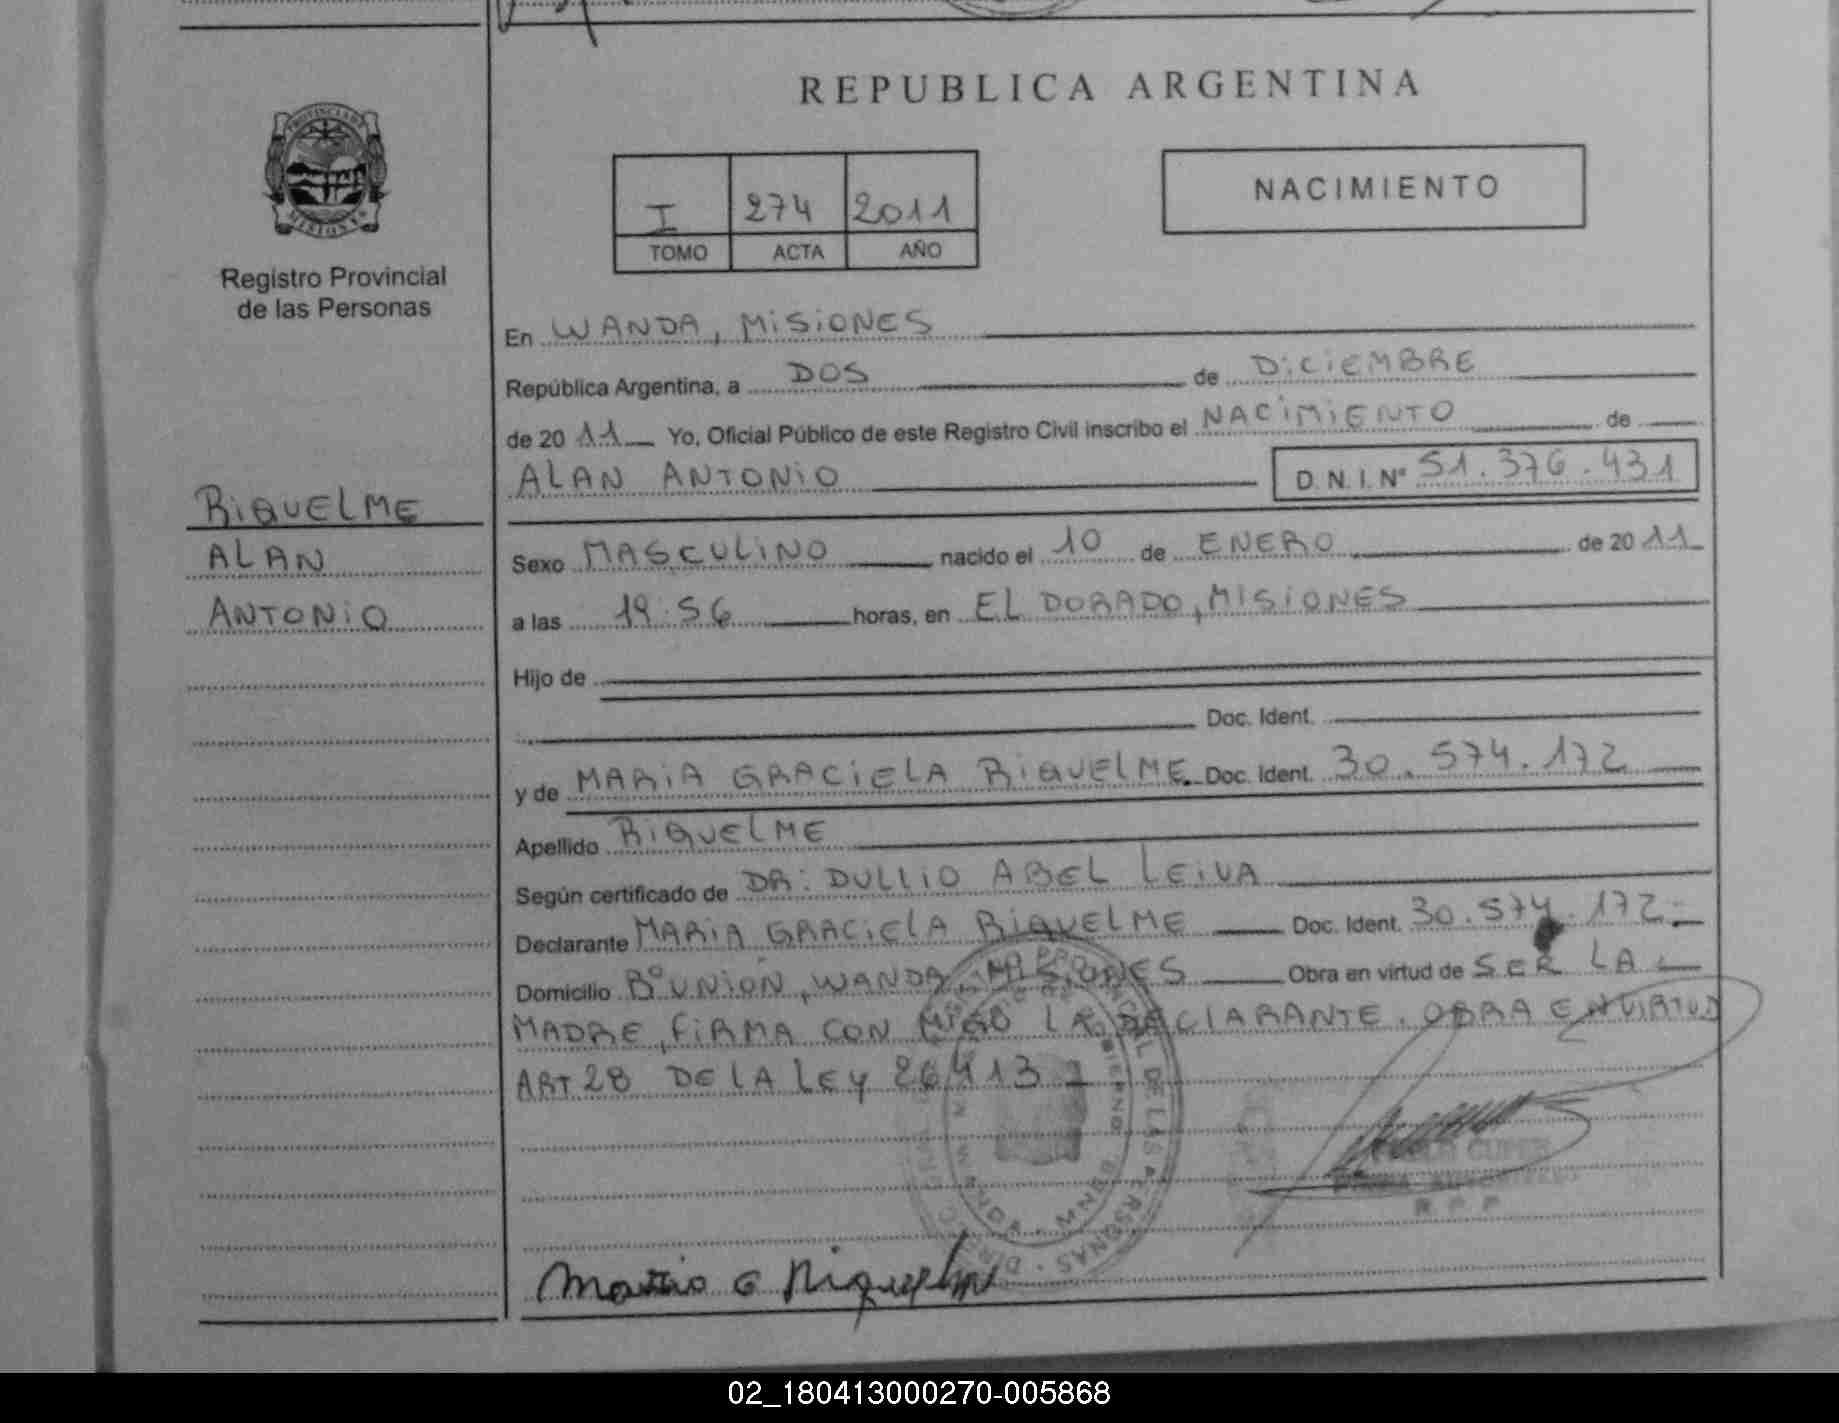 REPUBLICA ARGENTINA
PROVINCIA DE
MISIONES
Registro Provincial
de las Personas
I 274 2011
TOMO ACTA AÑO
NACIMIENTO
En WANDA, MISIONES
República Argentina, a DOS de DICIEMBRE
de 20 11 Yo, Oficial Público de este Registro Civil inscribo el NACIMIENTO de
ALAN ANTONIO D. N. I. Nº 51.376.431
RIQUELME
ALAN
ANTONIO
Sexo MASCULINO nacido el 10 de ENERO de 20 11
a las 19:56 horas, en EL DORADO, MISIONES
Hijo de
Doc. Ident.
y de MARIA GRACIELA RIQUELME. Doc. Ident. 30.574.172
Apellido RIQUELME
Según certificado de DR: DULLIO ABEL LEIVA
Declarante MARIA GRACIELA RIQUELME Doc. Ident. 30.574.172
Domicilio Bº UNION, WANDA, MISIONES Obra en virtud de SER LA
MADRE, FIRMA CON MIGO LA DECLARANTE. OBRA EN VIRTUD
ART 28 DE LA LEY 26413
R. P. P.
Maria G Riquelme
02_180413000270-005868